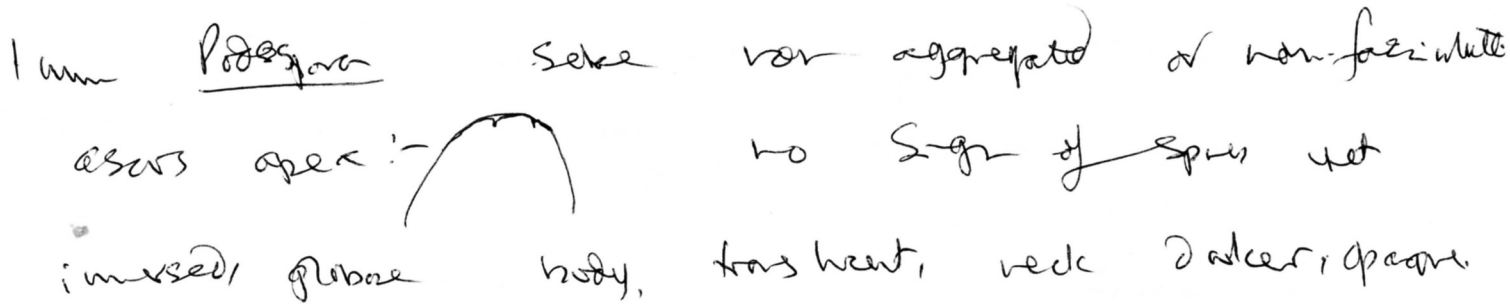 1 imm Podospora setae non aggregated or non-fasciculate
ascus apex :- no sign of spores yet
immersed, globose body, translucent, neck darker, opaque.